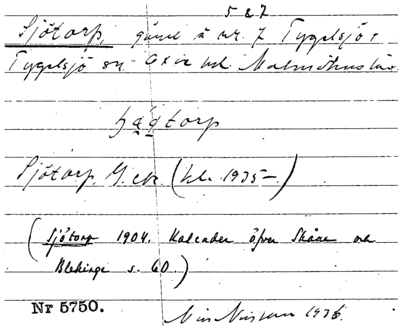 5 & 7
Sjötorp, på nr. 7 Tygelsjö,
Tygelsjö sn. Oxie hd. Malmöhus län.
Sjötorp. G. ek. (bl. 1935–)
(Sjötorp 1904. Kalender öfver Skåne och
Blekinge s. 60.)
Nr 5750.
Nils Nilsson 1936.